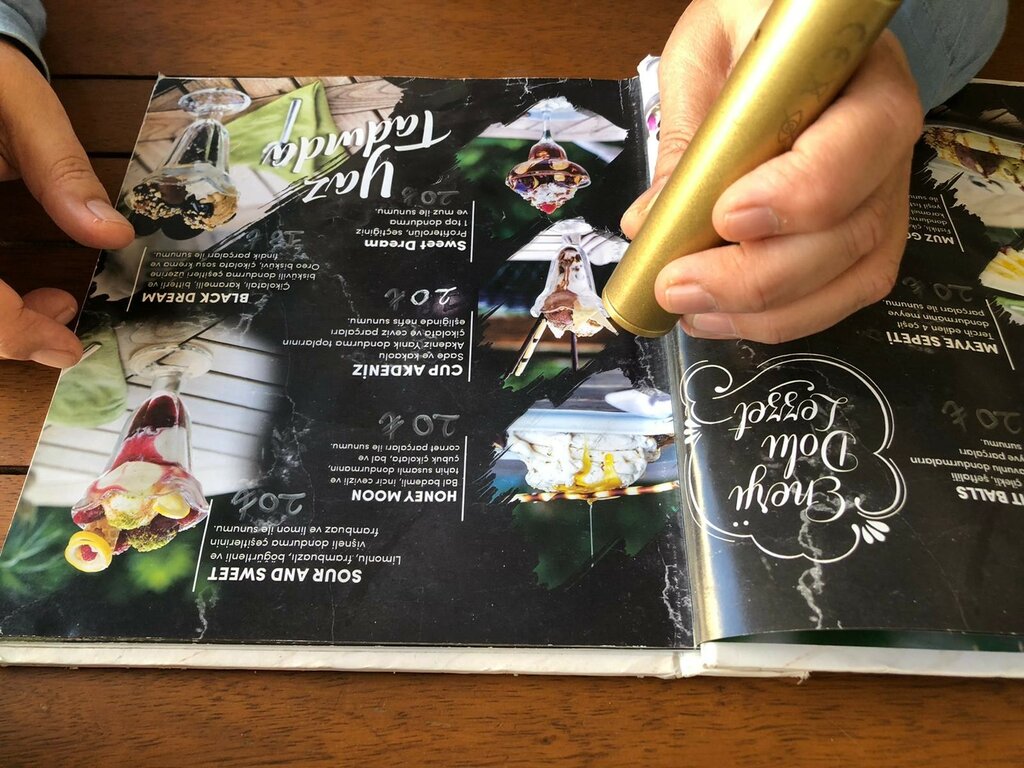 IT BALLS
çilekli, şeftalili
avunlu dondurmaların
sunumu.
20 ₺
Enerji
Dolu
Lezzet
MEYVE SEPETİ
Tercih edilen 4 çeşit
dondurmanın meyve
parçaları ile sunumu.
20 ₺
MUZ GO
SOUR AND SWEET
Limonlu, frambuazlı, böğürtlenli ve
vişneli dondurma çeşitlerinin
frambuaz ve limon ile sunumu.
20 ₺
HONEY MOON
Bal bademli, incir cevizli ve
tahin susamlı dondurmanın,
çubuk çikolata, bal ve
cornet parçaları ile sunumu.
20 ₺
CUP AKDENİZ
Sade ve kakaolu
Akdeniz Yanık dondurma toplarının
çikolata ve ceviz parçaları
eşliğinde nefis sunumu.
20 ₺
BLACK DREAM
Çikolatalı, karamelli, kakaolu
bisküvili dondurma çeşitleri üzerine
Oreo bisküvi, çikolata sosu krema ve
fındık parçaları ile sunumu.
Sweet Dream
Profiterolün, seçtiğiniz
1 top dondurma
ve muz ile sunumu.
20 ₺
Yaz
Tadında